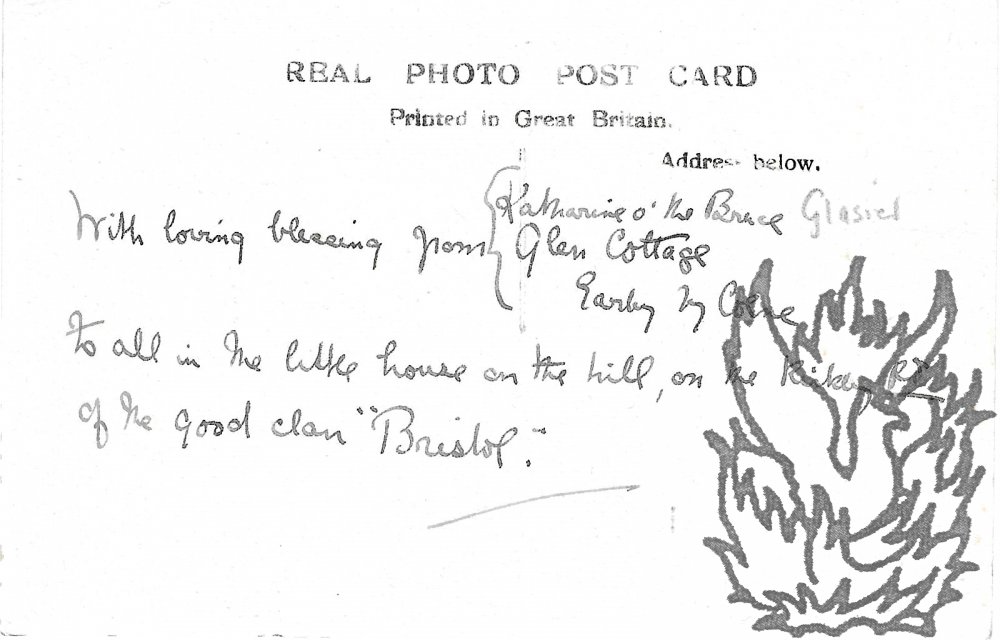 REAL PHOTO POST CARD
Printed in Great Britain.
Address below.
With loving blessing from { Katharine o' the Bruce Glasier
Glen Cottage
Earby by Colne
To all in the little house on the hill, on the Kirkby Rd
of the good clan "Bristol".